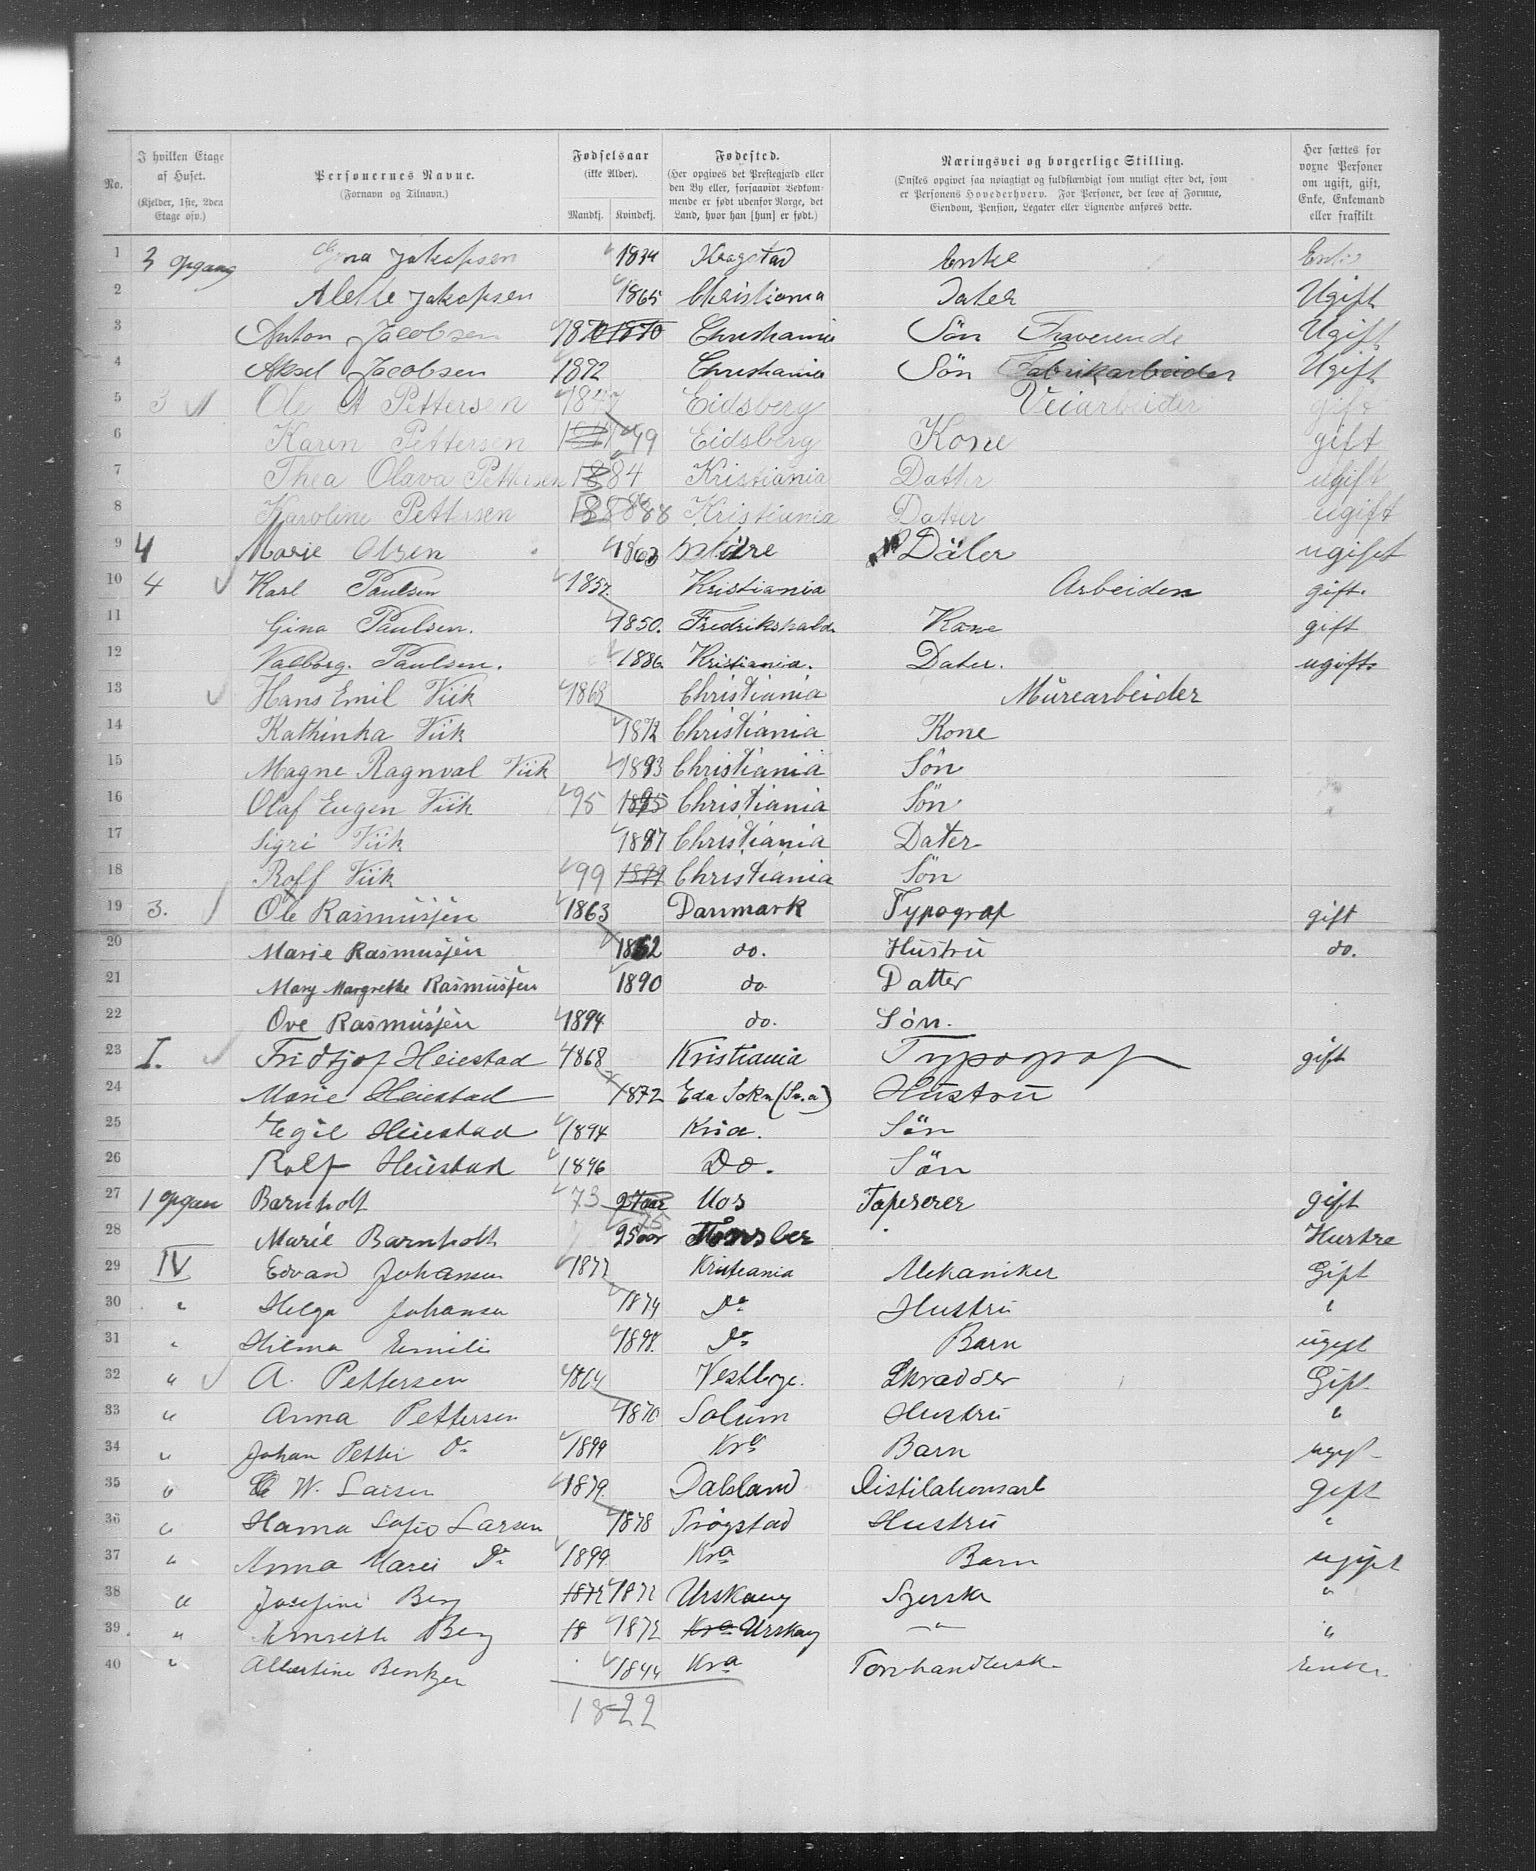 No. I hvilken Etage af Huset. (Kjelder, 1ste, 2den Etage osv.) Personernes Navne. (Fornavn og Tilnavn.) Fødselsaar (ikke Alder). Mandkj. Kvindekj. Fødested. (Her opgives det Præstegjæld eller den By eller, forsaavidt Vedkommende er født udenfor Norge, det Land, hvor han [hun] er født.) Næringsvei og borgerlige Stilling. (Ønskes opgivet saa nøiagtigt og fuldstændigt som muligt efter det, som er Personens Hovederhverv. For Personer, der leve af Formue, Eiendom, Pension, Legater eller Lignende anføres dette. Her sættes for voxne Personer om ugift, gift, Enke, Enkemand eller fraskilt
1 3 opgang Gina Jakopsen 1834 Haagstad Enke Enke
2 Alette Jakopsen 1865 Christiania Dater Ugift
3 Anton Jacobsen 1870 1870 Christiania Sön Fraverende Ugift
4 Aksel Jacobsen 1872 Christiania Sön Fabrikarbeider Ugift
5 3 Ole A Pettersen 1847 Eidsberg Veiarbeider gift
6 Karen Pettersen 49 Eidsberg Kone gift
7 Thea Olava Pettersen 1884 Kristiania Datter ugift
8 Karoline Pettersen 1888 88 Kristiania Datter ugift
9 4 Marie Olsen 1863 Däler ugift
10 4 Karl Paulsen 1857. Kristiania Arbeiden gift.
11 Gina Paulsen. 1850. Fredrikshald. Kone gift
12 Valborg. Paulsen. 1886 Kristiania. Dater. ugift
13 Hans Emil Viik 1868 Christiania Mürearbeider
14 Kathinka Viik 1872 Christiania Kone
15 Magne Ragnval Viik 1893 Christiania Sön
16 Olaf Eugen Viik 95 1895 Christiania Sön
17 Sigri Viik 1897 Christiania Dater
18 Roff Viik 99 1899 Christiania Sön
19 3. Ole Rasmüssen 1863 Danmark Typograf gift
20 Marie Rasmussen 1862 do. Hustru do.
21 Mary Margrethe Rasmussen 1890 do Datter
22 Ove Rasmüssen 1894 do. Sön.
23 I. Fridtjof Heiestad 1868 Kristiania Typograf gift
24 Marie Heiestad 1872 Eda Sokn (Sv.a) Hüstrü
25 Egil Heiestad 1894 Kria. Sön
26 Rolf Heiestad 1896 Do. Sön
27 1 opgan Barnholt 73 27 aar Mos Tapeserer gift
28 Marie Barnholt 75 25 aar Tönsber Hustre
29 IV Edvard Johansen 1877 Kristiania Mekaniker Gift
30 " Helga Johansen 1874 Do Hustru "
31 " Hilma Emilie 1898. Do Barn ugift
32 " A. Pettersen 1864 Vestbye. Skrædder Gift
33 " Anna Pettersen 1870 Solum Hustru "
34 " Johan Petter Do 1899 Kra Barn ugift
35 " W. Larsen 1879 Dalsland Distilationsarb gift
36 " Hanna Sofie Larsen 1878 Trögstad Hustru "
37 " Anna Marie Do 1899 Kra Barn ugift
38 " Josefine Berg 1872 1872 Urskoug Syerske "
39 " Berg 18 1872 Kra Urskoug " "
40 " Albertine 1844 Kra Torvhandlersk Enke.
18-22